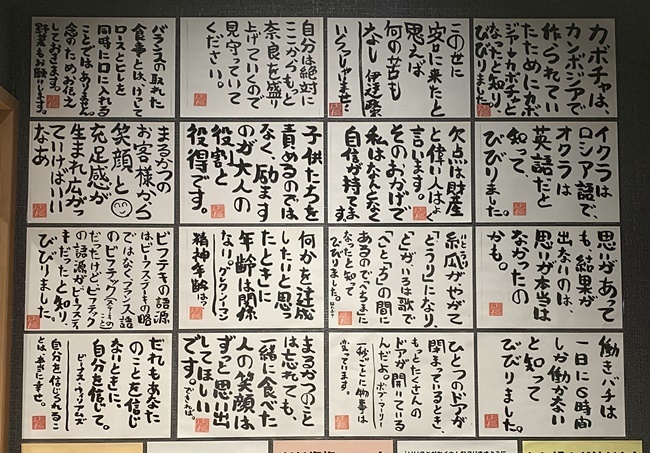 カボチャは、
カンボジアで
作られてい
たためにカボ
ジア→カボチャと
なったと知り、
びびりました。
この世に
客に来たと
思えば
何の苦も
なし 伊達政宗
いらっしゃいませ。
自分は絶対に
ここからもっと
奈良を盛り
上げていくので
見守っていて
ください。
バランスの取れた
食事とは、けって
ロースとヒレを
同時に口に入れる
ことではありません。
念のためお伝え
しておきます。
野菜もお願いします。
イクラは
ロシア語で、
オクラは
英語だと
知って、
びびりました。
欠点は財産
と偉い人はよく
言います。
そのおかげで
私はなんとなく
自信が持てま
す。
子供たちを
責めるのでは
なく、励ます
のが大人の
役割と
役得です。
まるかつの
お客様から
笑顔と
充足感が
生まれ広がっ
ていけばいい
なあ
思いがあって
も、結果が
出ないのは、
思いが本当は
なかったの
かも。
糸瓜がやがて
「とうり」になり、
「と」がいろは歌で
「へ」と「ち」の間に
あるので「へちま」に
なったと知って
びびりました。
何かを達成
したいと思っ
たときに
年齢は関係
ない。
精神年齢は?
ビフテキの語源
はビーフステーキの略
ではなく、フランス語
のビフテック
だったけどビフテック
の語源がビーフステー
キだったと知り
びびりました。
働きバチは
一日に6時間
しか働かない
と知って
びびりました。
ひとつのドアが
閉まっているとき、
もっとたくさんの
ドアが開いている
んだよ。ボブ・マーリー
一秒ごとに物事は
変っています。
まるかつのこと
は忘れても、
一緒に食べた
人の笑顔は
ずっと思い出
してほしい
です。できれば。
だれもあなた
のことを信じ
ないときに、
自分を信じて。
ビーナス・ウィリアムズ
自分を信じられるこ
とは、本当に幸せ。